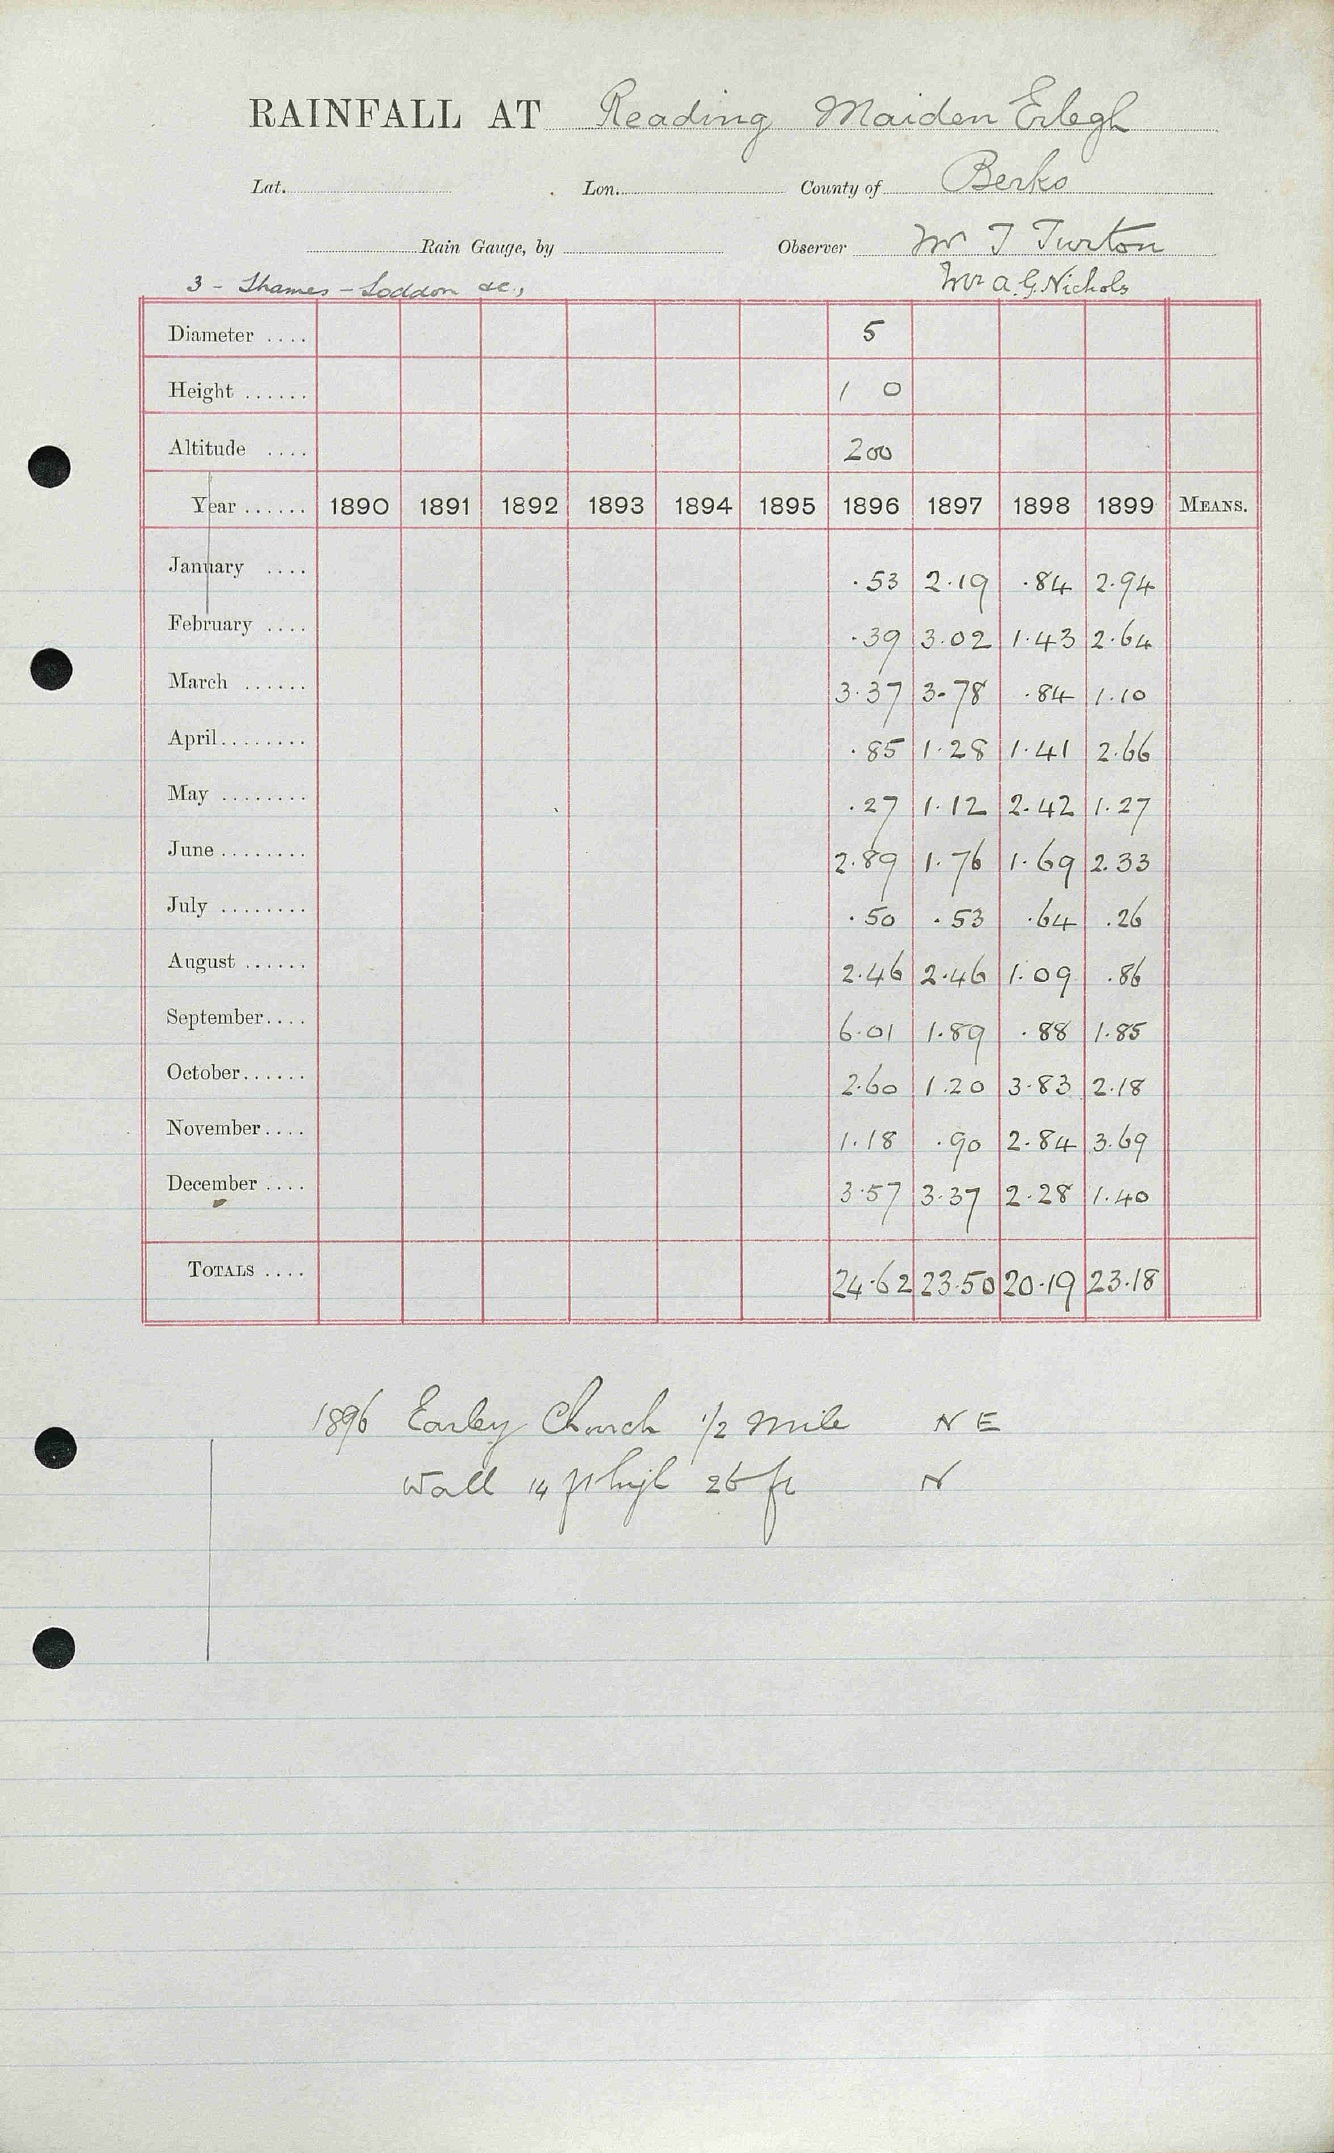 RAINFALL AT Reading Maiden Erlegh
Lat. Lon. County of Berks
Rain Gauge, by Observer Mr T Turton
3 - Thames - Loddon &c., Mr A. G. Nichols
Diameter .... 5
Height ...... 1 0
Altitude .... 200
Year ...... 1890 1891 1892 1893 1894 1895 1896 1897 1898 1899 MEANS.
January .... .53 2.19 .84 2.94
February .... .39 3.02 1.43 2.64
March ...... 3.37 3.78 .84 1.10
April........ .85 1.28 1.41 2.66
May ........ .27 1.12 2.42 1.27
June........ 2.89 1.76 1.69 2.33
July ........ .50 .53 .64 .26
August ...... 2.46 2.46 1.09 .86
September.... 6.01 1.89 .88 1.85
October...... 2.60 1.20 3.83 2.18
November.... 1.18 .90 2.84 3.69
December .... 3.57 3.37 2.28 1.40
TOTALS .... 24.62 23.50 20.19 23.18
1896 Earley Church 1/2 mile N E
Wall 14 ft high 26 ft N